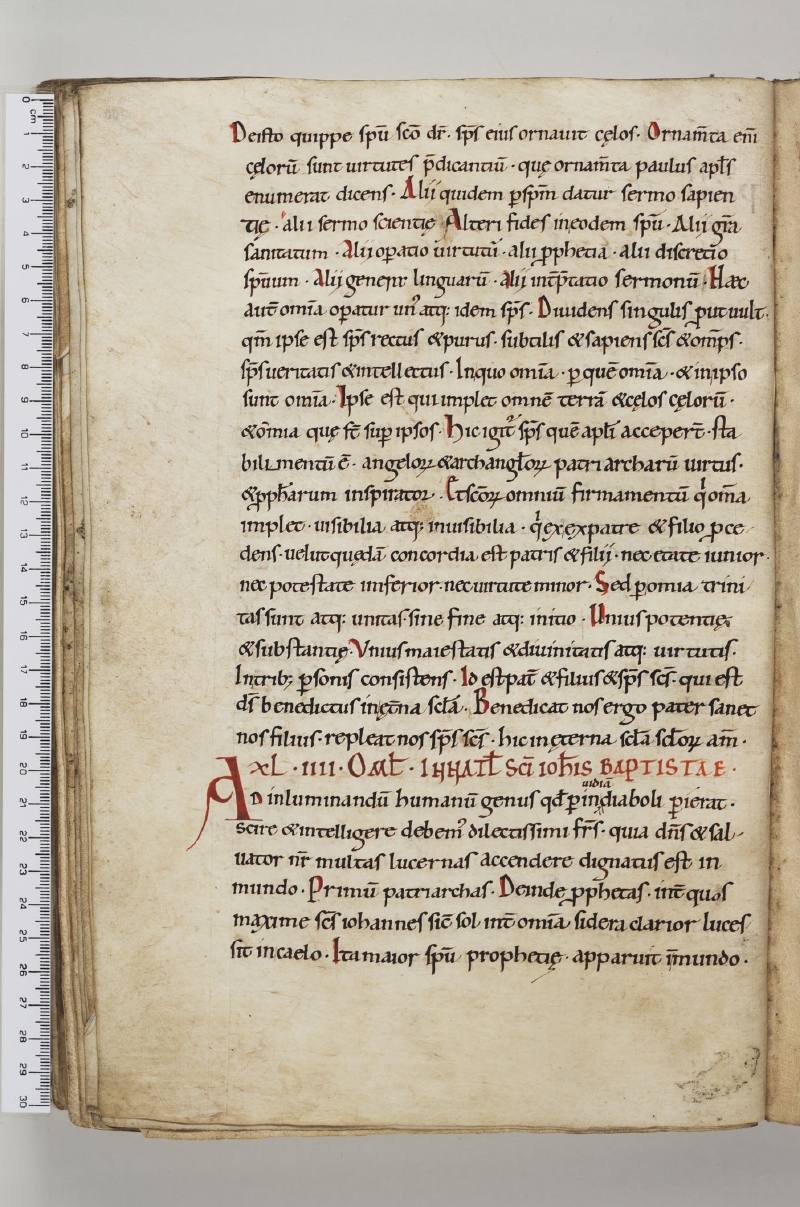 Deisto quippe spū scō dr̄. sps̄ eius ornauit cęlos. Ornam̄ta em̄
cęlorū sunt uirtutes p̄dicantiū. quę ornam̄ta paulus apls̄
enumerat dicens. Alii quidem ꝑspm̄ datur sermo sapien
tię. alii sermo scientię Alteri fides ineodem spū. Alii gr̄a
sanitatum. Alii oꝑatio uirtutū. alii ꝓphetia. alii discretio
spūum. Alii genera linguarū. Alii int̄p̄tatio sermonū. Hæc
aut̄ omīa oꝑatur un᷒ atq; idem sps̄. Diuidens singulis ꝓut uult.
qm̄ ipse est sps̄ rectus & purus. subtilis & sapiens scs̄ & omps̄.
sps̄ ueritatis & intellectus. Inquo omīa. ꝑ quē omīa. & in ipso
sunt omīa. Ipse est qui implet omnē terrā & cęlos cęlorū.
& om̄ia quę st̄ suꝑ ipsos. Hic igit᷑ sps̄ quē apl̄i acceper̄t. sta
bilimentū ē. angeloꝝ & archangl̄oꝝ patriarcharū uirtus.
& ꝓph̄arum inspirator. Et sc̄oꝝ omniū firmamentū qͥ om̄a
implet. uisibilia atq; inuisibilia. qͥ ex expatre & filio ꝓce
dens. uelut quędā concordia est patris & filii. nec etate iunior.
nec potestate inferior. nec uirtute minor. Sed ꝑ omia trini
tas sunt atq; unitas. sine fine atq; initio. Unius potentię
& substantię. Vnius maiestatis & diuinitatis atq; uirtutis.
Intrib; ꝑsonis consistens. Id est pat̄ & filius & sps̄ scs̄. qui est
ds̄ benedictus in ęt̄na scl̄a. Benedicat nos ergo pater sanct
nos filius. repleat nos sps̄ scs̄. hic in ęterna scl̄a scl̄oꝝ am̄.
XL. IIII. OML̄. INNAT̄ Sc̄i IOh̄IS BAPTISTAE.
uidiā
AD inluminandū humanū genus qd̄ ꝑ in diaboli ꝑierat.
scire & intelligere debem᷒ dilectissimi frs̄. quia dn̄s & sal
uator nr̄ multas lucernas accendere dignatus est in
mundo. Primū patriarchas. Deinde ꝓphetas. int̄ quos
maxime scs̄ iohannes sic̄ sol int̄ omīa sidera clarior luces
sit in caelo. Ita maior spū prophetię. apparuit īmundo.